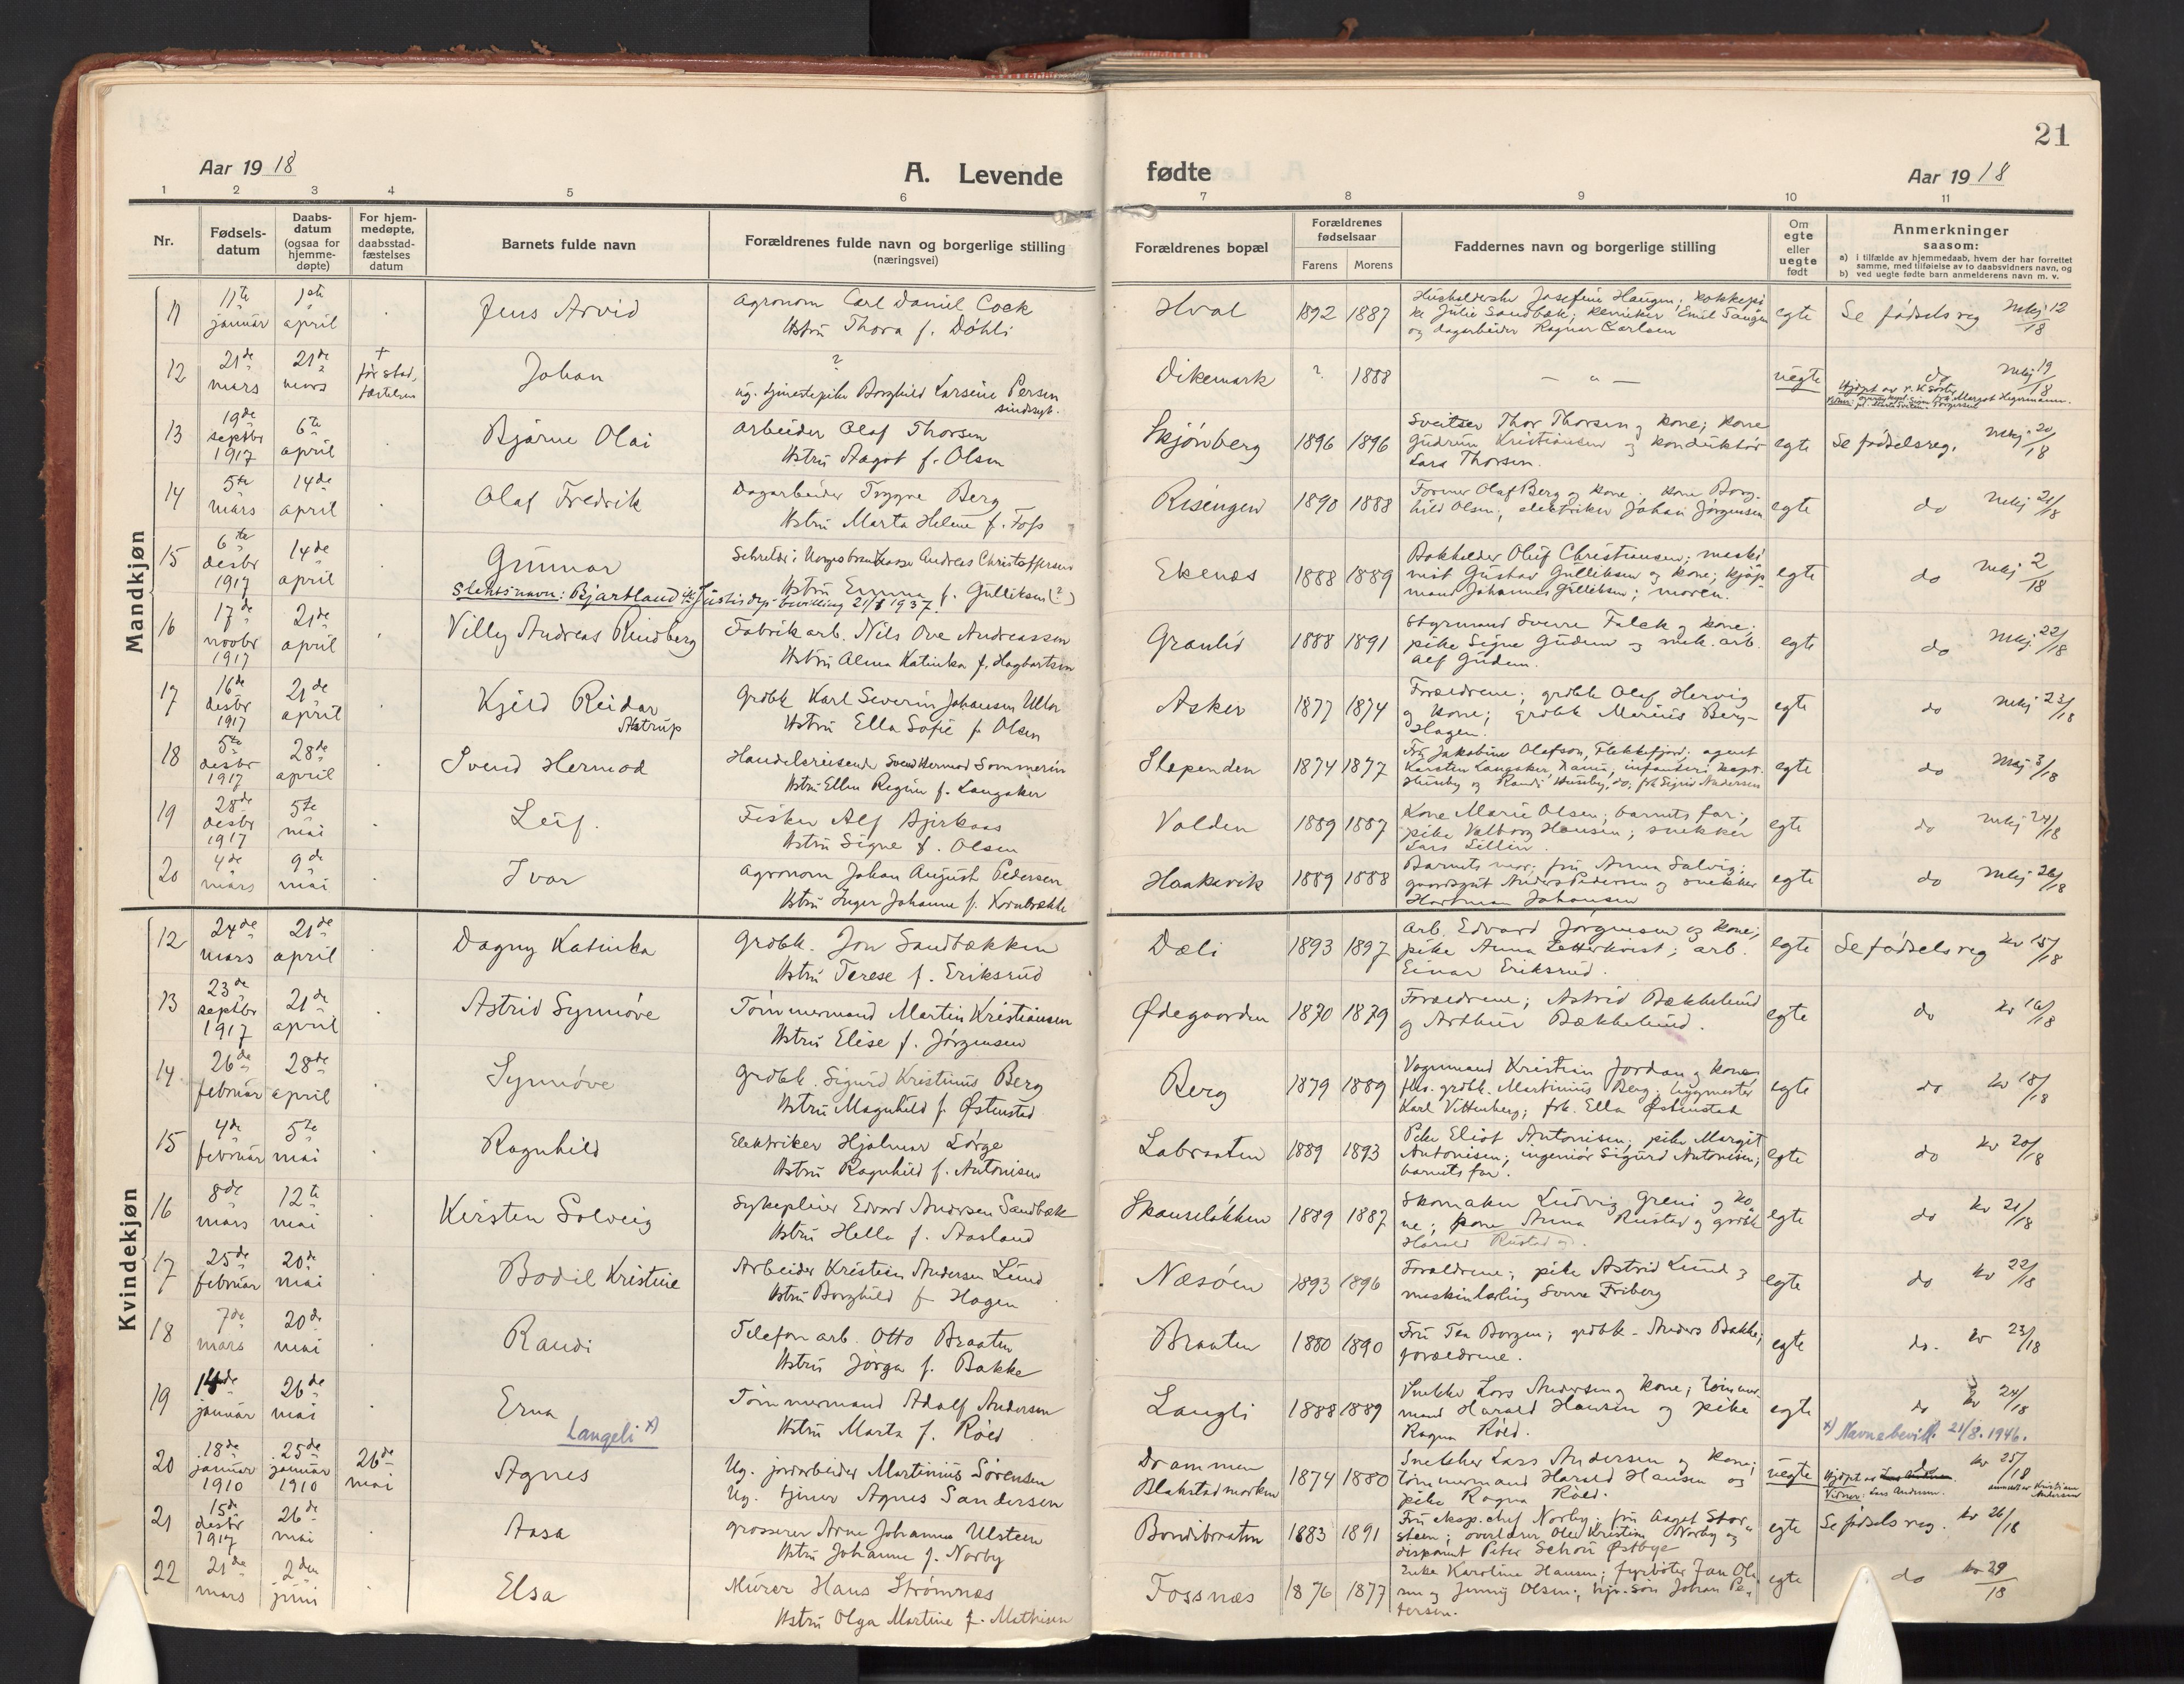 21
Aar 1918
A. Levende
fødte
Aar 1918
1 2 3 4 5 6 7 8 9 10 11
Nr.
Fødsels-
datum
Daabs-
datum
(ogsaa for
hjemme-
døpte)
For hjem-
medøpte,
daabsstad-
fæstelses
datum
Barnets fulde navn
Forældrenes fulde navn og borgerlige stilling
(næringsvei)
Forældrenes bopæl
Forældrenes
fødselsaar
Farens Morens
Faddernes navn og borgerlige stilling
Om
egte
eller
uegte
født
Anmerkninger
saasom:
a) i tilfælde av hjemmedaab, hvem der har forrettet
samme, med tilføielse av to daabsvidners navn, og
b) ved uegte født barn anmelderens navn m. v.
Mandkjøn
11
11te januar
1ste april
Jens Arvid
Agronom Carl Daniel Cock
Hstru Thora f. Døhli
Hval
1892 1887
Husholderske Josefine Haugen; kokkepi-
ke Julie Sandbæk; kemiker Emil Taugen
og dagarbeider Ragnar Carlsen
egte
Se fødselsreg mkj 12/18
12
21de mars
21de mars
† før stad-
fæstelsen
Johan
?
ug. tjenestepike Borghild Larsine Persen
sindssyk.
Dikemark
? 1888
— " —
uegte
do mkj 19/18
13
19de septbr 1917
6te april
Bjarne Olai
Arbeider Olaf Thorsen
Hstru Aagot f. Olsen
Skjønberg
1896 1896
Sveitser Thor Thorsen og kone; kone
Gudrun Kristiansen og konduktør
Lars Thorsen.
egte
Se fødselsreg. mkj. 20/18
14
5te mars
14de april
Olaf Fredrik
Dagarbeider Trygve Berg
Hstru Marta Helene f. Foss
Risengen
1890 1888
Former Olaf Berg og kone; kone Borg-
hild Olsen; elektriker Johan Jørgensen
egte
do mkj 21/18
15
6te desbr 1917
14de april
Gunnar
Slektsnavn: Bjartland Justisdep. bevilling 21/8 1937.
Sekretær i Norges brandkasse Andreas Christoffersen
Hstru Emma f. Gulliksen (?)
Ekenæs
1888 1889
Bokholder Oluf Christiansen; maski-
nist Gustav Gulliksen og kone; kjøp-
mand Johannes Gulliksen; moren.
egte
do mkj 2/18
16
17de novbr 1917
21de april
Villy Andreas Rundberg
Fabrikarb. Nils Ove Andreassen
Hstru Alma Katinka f. Hagbartsen
Granlid
1888 1891
Styrmand Sverre Falck og kone;
pike Signe Gudem og mek. arb.
Alf Gudem.
egte
do mkj 22/18
17
16de desbr 1917
21de april
Kjeld Reidar
Astrup
Grdbk Karl Severin Johansen Ultor
Hstru Ella Sofie f. Olsen
Asker
1877 1874
Forældrene; grdbk Olaf Hervig
og kone; grdbk Marius Berg-
Hagen.
egte
do mkj 23/18
18
5te desbr 1917
28de april
Svend Hermod
Handelsreisende Svend Hermod Sommerin
Hstru Ellen Regine f. Langaker
Slependen
1874 1877
Fru Jakobine Olafson, Flekkefjord; agent
Karsten Langaker, infanteri kapt.
Huseby og Randi Huseby, do, frk Sigrid Andersen
egte
do mkj 3/18
19
28de desbr 1917
5te mai
Leif.
Fisker Alf Bjerkaas
Hstru Signe f. Olsen
Volden
1889 1887
Kone Marie Olsen; barnets far;
pike Valborg Hansen; snekker
Lars Lillin.
egte
do mkj 24/18
20
4de mars
9de mai
Ivar
Agronom Johan August Pedersen
Hstru Inger Johanne f. Kornbrække
Haakavik
1889 1888
Barnets mor; fru Anna Solvig;
gaardsgut Anders Pedersen og snekker
Hartman Johansen
egte
do mkj 26/18
Kvindekjøn
12
24de mars
21de april
Dagny Katinka
Grdbk. Jon Sandbækken
Hstru Terese f. Eriksrud
Dæli
1893 1897
Arb. Edvard Jørgensen og kone;
pike Anna Zetterkvist; arb.
Einar Eriksrud.
egte
Se fødselsreg kv 15/18
13
23de septbr 1917
21de april
Astrid Synnøve
Tømmermand Martin Kristiansen
Hstru Elise f. Jørgensen
Ødegaarden
1870 1879
Forældrene; Astrid Bækkelund
og Arthur Bækkelund.
egte
do kv 16/18
14
26de februar
28de april
Synnøve
Grdbk. Sigurd Kristinus Berg
Hstru Magnhild f. Østenstad
Berg
1879 1889
Vognmand Kristian Jordan og kone;
fhv. grdbk. Martinius Berg; byggmester
Karl Vittenberg; frk. Ella Østenstad
egte
do kv 18/18
15
4de februar
5te mai
Ragnhild
Elektriker Hjalmar Lørge
Hstru Ragnhild f. Antonisen
Labraaten
1889 1893
Pike Eliot Antonisen; pike Margit
Antonisen; ingeniør Sigurd Antonisen;
barnets far.
egte
do kv 20/18
16
8de mars
12te mai
Kirsten Solveig
Sykepleier Edvard Andersen Sandbæk
Hstru Hella f. Aasland
Skauseløkken
1889 1887
Skomaker Ludvig Greni og ko-
ne; kone Anna Rustad og grdbk
Harald Rustad
egte
do kv 21/18
17
25de februar
20de mai
Bodil Kristine
Arbeider Kristian Andersen Lund
Hstru Borghild f Hagen
Næsøen
1893 1896
Forældrene; pike Astrid Lund og
maskinlærling Sverre Friberg
egte
do kv 22/18
18
7de mars
20de mai
Randi
Telefonarb. Otto Braaten
Hstru Jørga f. Bakke
Braaten
1880 1890
Fru Tea Borgen; grdbk. Anders Bakke;
forældrene.
egte
do. kv 23/18
19
14de januar
26de mai
Erna
Langeli x)
Tømmermand Adolf Andersen
Hstru Marta f. Røed
Langli
1888 1889
Snekker Lars Andersen og kone; tømmer-
mand Harald Hansen og pike
Ragna Røed.
egte
do kv 24/18
x) Navnebevill. 21/8. 1946.
20
18de januar 1910
25de januar 1910
26de mai
Agnes
Ug. jordarbeider Martinius Sørensen
Ug. tjener Agnes Sandersen
Drammen
Blakstadmarken
1874 1880
Snekker Lars Andersen og kone;
tømmermand Harald Hansen og
pike Ragna Røed.
uegte
do kv 25/18
Vidner: Lars Andersen.
anmelder Kristiane
Andersen
21
15de desbr 1917
26de mai
Aasa
Grosserer Arne Johannes Ulsteen
Hstru Johanne f. Norby
Bondibraaten
1883 1891
Fru eksp.chef Norby; fru Aagot Stor-
steen; overlærer Ole Kristian Norby og
disponent Peter Schou Østbye
egte
Se fødselsreg. kv 26/18
22
21de mars
2den juni
Elsa
Murer Hans Strømnæs
Hstru Olga Martine f. Mathisen
Fossnæs
1876 1877
Enke Karoline Hansen; fyrbøter Jan Ol-
sen og Jenny Olsen; Johan Pe-
tersen.
egte
do kv 29/18